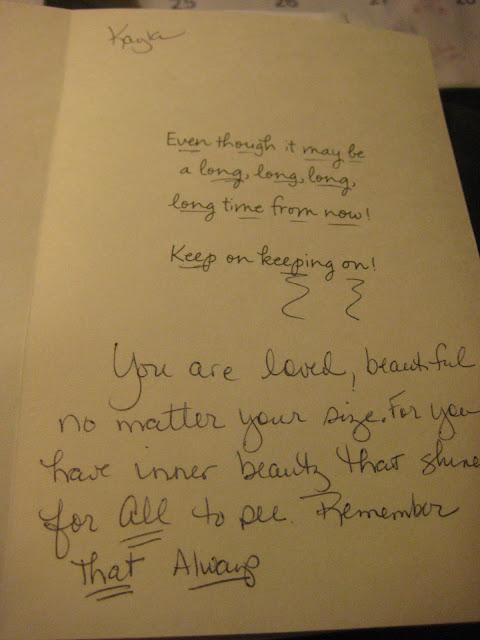 Kayla
Even though it may be
a long, long, long,
long time from now!
Keep on keeping on!
You are loved, beautiful
no matter your size. For you
have inner beauty that shine
for All to see. Remember
that Always